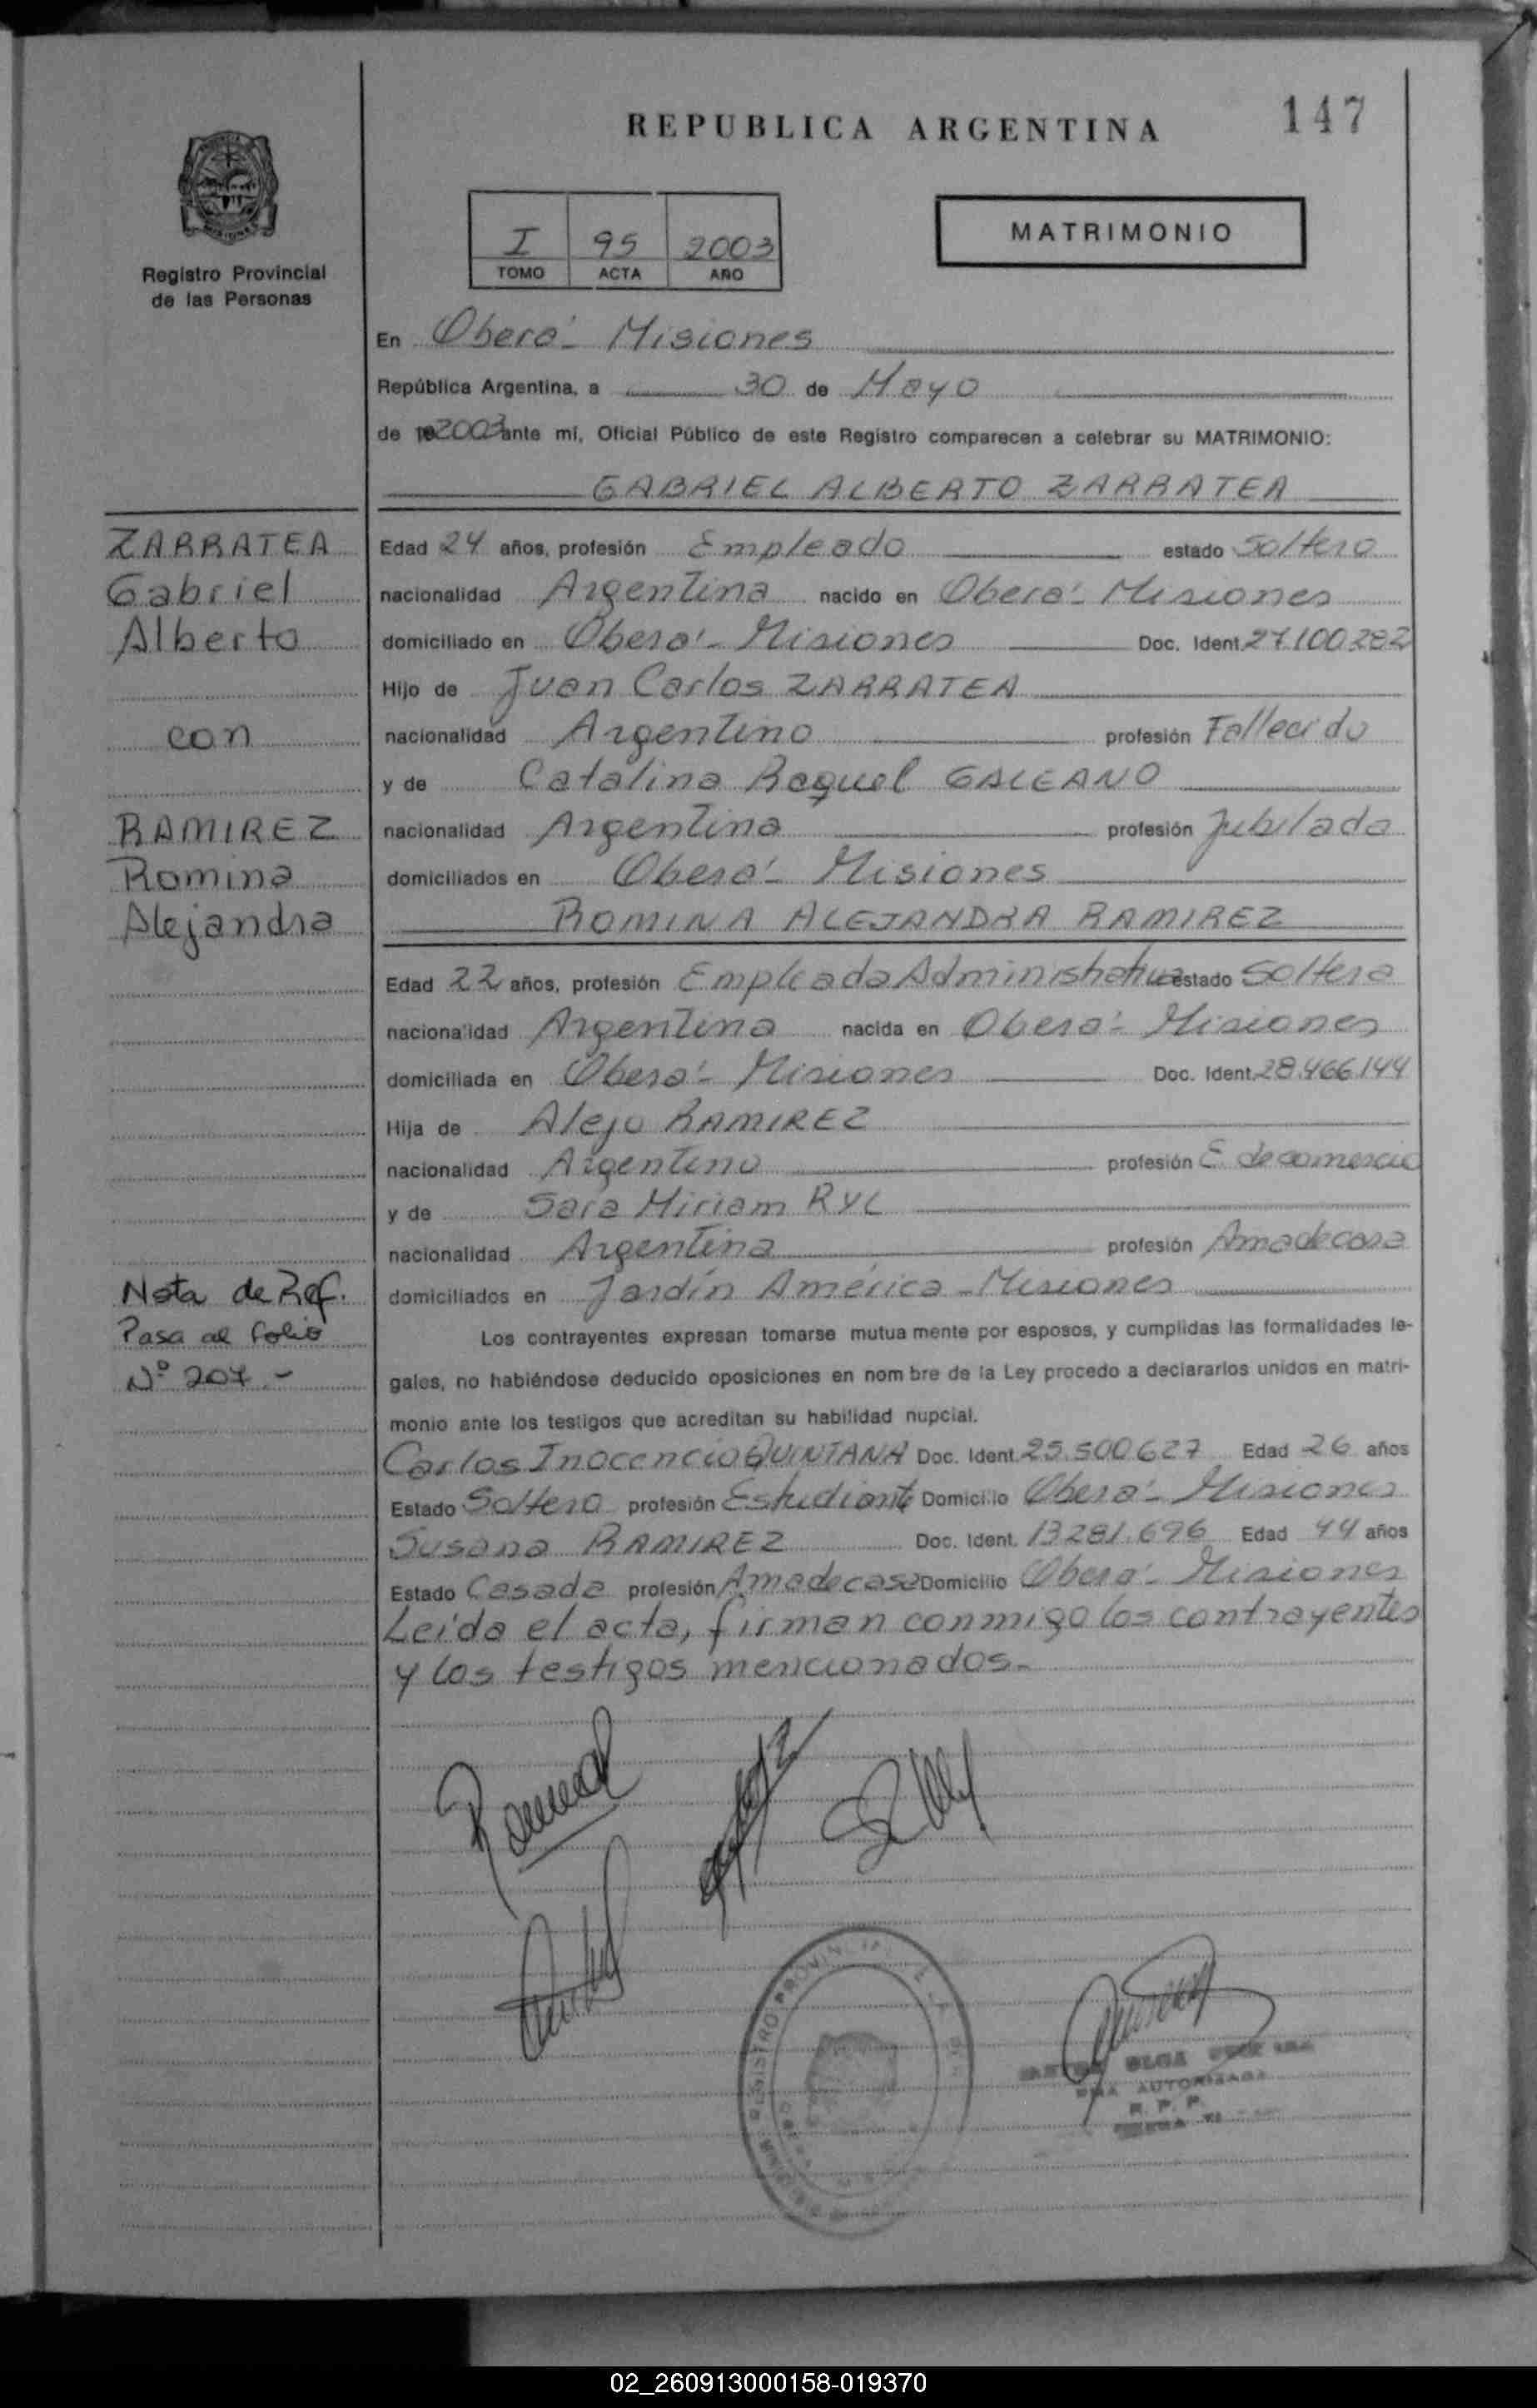 REPUBLICA ARGENTINA
147
I 95 2003
TOMO ACTA AÑO
MATRIMONIO
Registro Provincial
de las Personas
En Oberá - Misiones
República Argentina, a 30 de Mayo
de 2003 ante mí, Oficial Público de este Registro comparecen a celebrar su MATRIMONIO:
GABRIEL ALBERTO ZARRATEA
ZARRATEA
Gabriel
Alberto
con
RAMIREZ
Romina
Alejandra
Edad 24 años, profesión Empleado estado Soltero
nacionalidad Argentina nacido en Oberá - Misiones
domiciliado en Oberá - Misiones Doc. Ident. 27.100.282
Hijo de Juan Carlos ZARRATEA
nacionalidad Argentino profesión Fallecido
y de Catalina Raquel GALEANO
nacionalidad Argentina profesión Jubilada
domiciliados en Oberá - Misiones
ROMINA ALEJANDRA RAMIREZ
Edad 22 años, profesión Empleada Administrativa estado Soltera
nacionalidad Argentina nacida en Oberá - Misiones
domiciliada en Oberá - Misiones Doc. Ident. 28.466.144
Hija de Alejo RAMIREZ
nacionalidad Argentino profesión E. de comercio
y de Sara Miriam RYL
nacionalidad Argentina profesión Ama de casa
domiciliados en Jardín América - Misiones
Nota de Ref.
Pasa al folio
Nº 207.-
Los contrayentes expresan tomarse mutua mente por esposos, y cumplidas las formalidades le-
gales, no habiéndose deducido oposiciones en nom bre de la Ley procedo a declararlos unidos en matri-
monio ante los testigos que acreditan su habilidad nupcial.
Carlos Inocencio QUINTANA Doc. Ident. 25.500.627 Edad 26 años
Estado Soltero profesión Estudiante Domicilio Oberá - Misiones
Susana RAMIREZ Doc. Ident. 13.281.696 Edad 44 años
Estado Casada profesión Ama de casa Domicilio Oberá - Misiones
Leída el acta, firman conmigo los contrayentes
y los testigos mencionados.-
OLGA
AUTORIZADA
R. P. P.
02_260913000158-019370